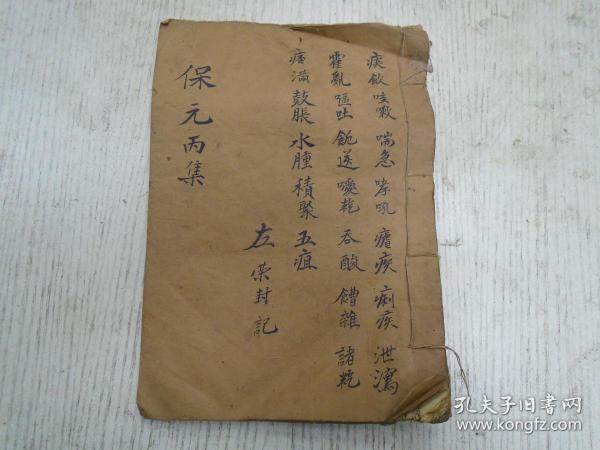 痰飲 咳嗽 喘急 哮吼 瘧疾 痢疾 泄瀉
霍亂 嘔吐 飽逆 噯氣 吞酸 饋雜 諸氣
痞滿 鼓脹 水腫 積聚 五疸
左 荣封記
保元丙集
孔夫子旧书网
www.kongfz.com